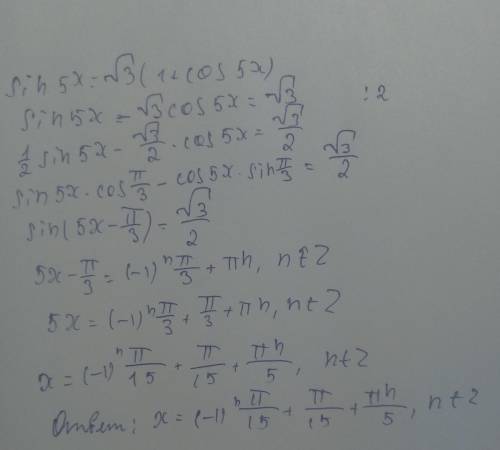 sin 5x = √3 (1 + cos 5x)
sin 5x - √3 cos 5x = √3 :2
1/2 sin 5x - √3/2 · cos 5x = √3/2
sin 5x · cos π/3 - cos 5x · sin π/3 = √3/2
sin(5x - π/3) = √3/2
5x - π/3 = (-1)ⁿ π/3 + πn, n∈Z
5x = (-1)ⁿ π/3 + π/3 + πn, n∈Z
x = (-1)ⁿ π/15 + π/15 + πn/5, n∈Z
Ответ: x = (-1)ⁿ π/15 + π/15 + πn/5, n∈Z